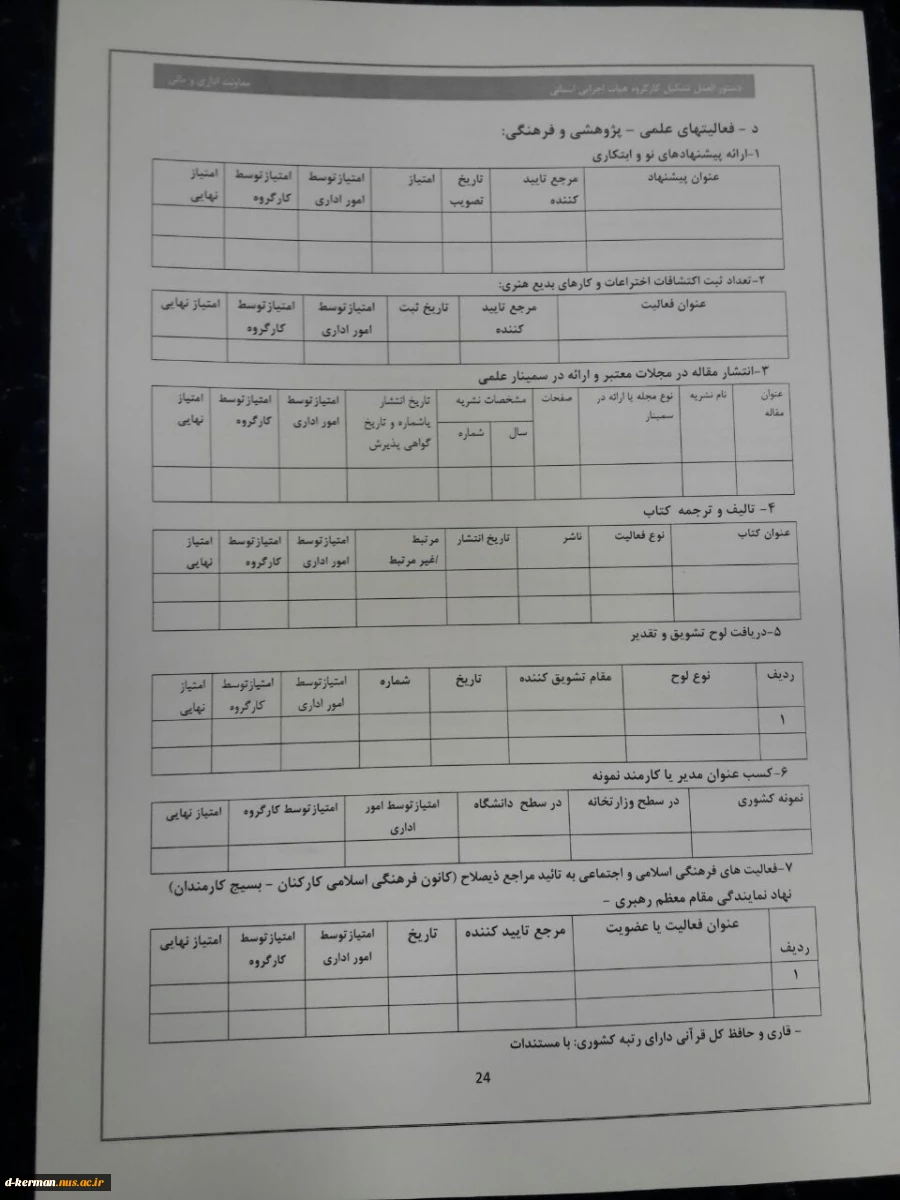 دستور العمل تشکیل کارگروه هیات اجرایی استانی
معاونت اداری و مالی
د - فعالیتهای علمی - پژوهشی و فرهنگی:
۱-ارائه پیشنهادهای نو و ابتکاری
عنوان پیشنهاد
مرجع تایید
کننده
تاریخ
تصویب
امتیاز
امتیاز توسط
امور اداری
امتیاز توسط
کارگروه
امتیاز
نهایی
۲-تعداد ثبت اکتشافات اختراعات و کارهای بدیع هنری:
عنوان فعالیت
مرجع تایید
کننده
تاریخ ثبت
امتیاز توسط
امور اداری
امتیاز توسط
کارگروه
امتیاز نهایی
۳-انتشار مقاله در مجلات معتبر و ارائه در سمینار علمی
عنوان
مقاله
نام نشریه
نوع مجله یا ارائه در
سمینار
صفحات
مشخصات نشریه
سال
شماره
تاریخ انتشار
یاشماره و تاریخ
گواهی پذیرش
امتیاز توسط
امور اداری
امتیاز توسط
کارگروه
امتیاز
نهایی
۴- تالیف و ترجمه کتاب
عنوان کتاب
نوع فعالیت
ناشر
تاریخ انتشار
مرتبط
/غیر مرتبط
امتیاز توسط
امور اداری
امتیاز توسط
کارگروه
امتیاز
نهایی
۵-دریافت لوح تشویق و تقدیر
ردیف
نوع لوح
مقام تشویق کننده
تاریخ
شماره
امتیاز توسط
امور اداری
امتیاز توسط
کارگروه
امتیاز
نهایی
۱
۶-کسب عنوان مدیر یا کارمند نمونه
نمونه کشوری
در سطح وزارتخانه
در سطح دانشگاه
امتیاز توسط امور
اداری
امتیاز توسط کارگروه
امتیاز نهایی
۷-فعالیت های فرهنگی اسلامی و اجتماعی به تائید مراجع ذیصلاح (کانون فرهنگی اسلامی کارکنان - بسیج کارمندان)
نهاد نمایندگی مقام معظم رهبری -
ردیف
عنوان فعالیت یا عضویت
مرجع تایید کننده
تاریخ
امتیاز توسط
امور اداری
امتیاز توسط
کارگروه
امتیاز نهایی
۱
- قاری و حافظ کل قرآنی دارای رتبه کشوری: با مستندات
24
d-kerman.nus.ac.ir